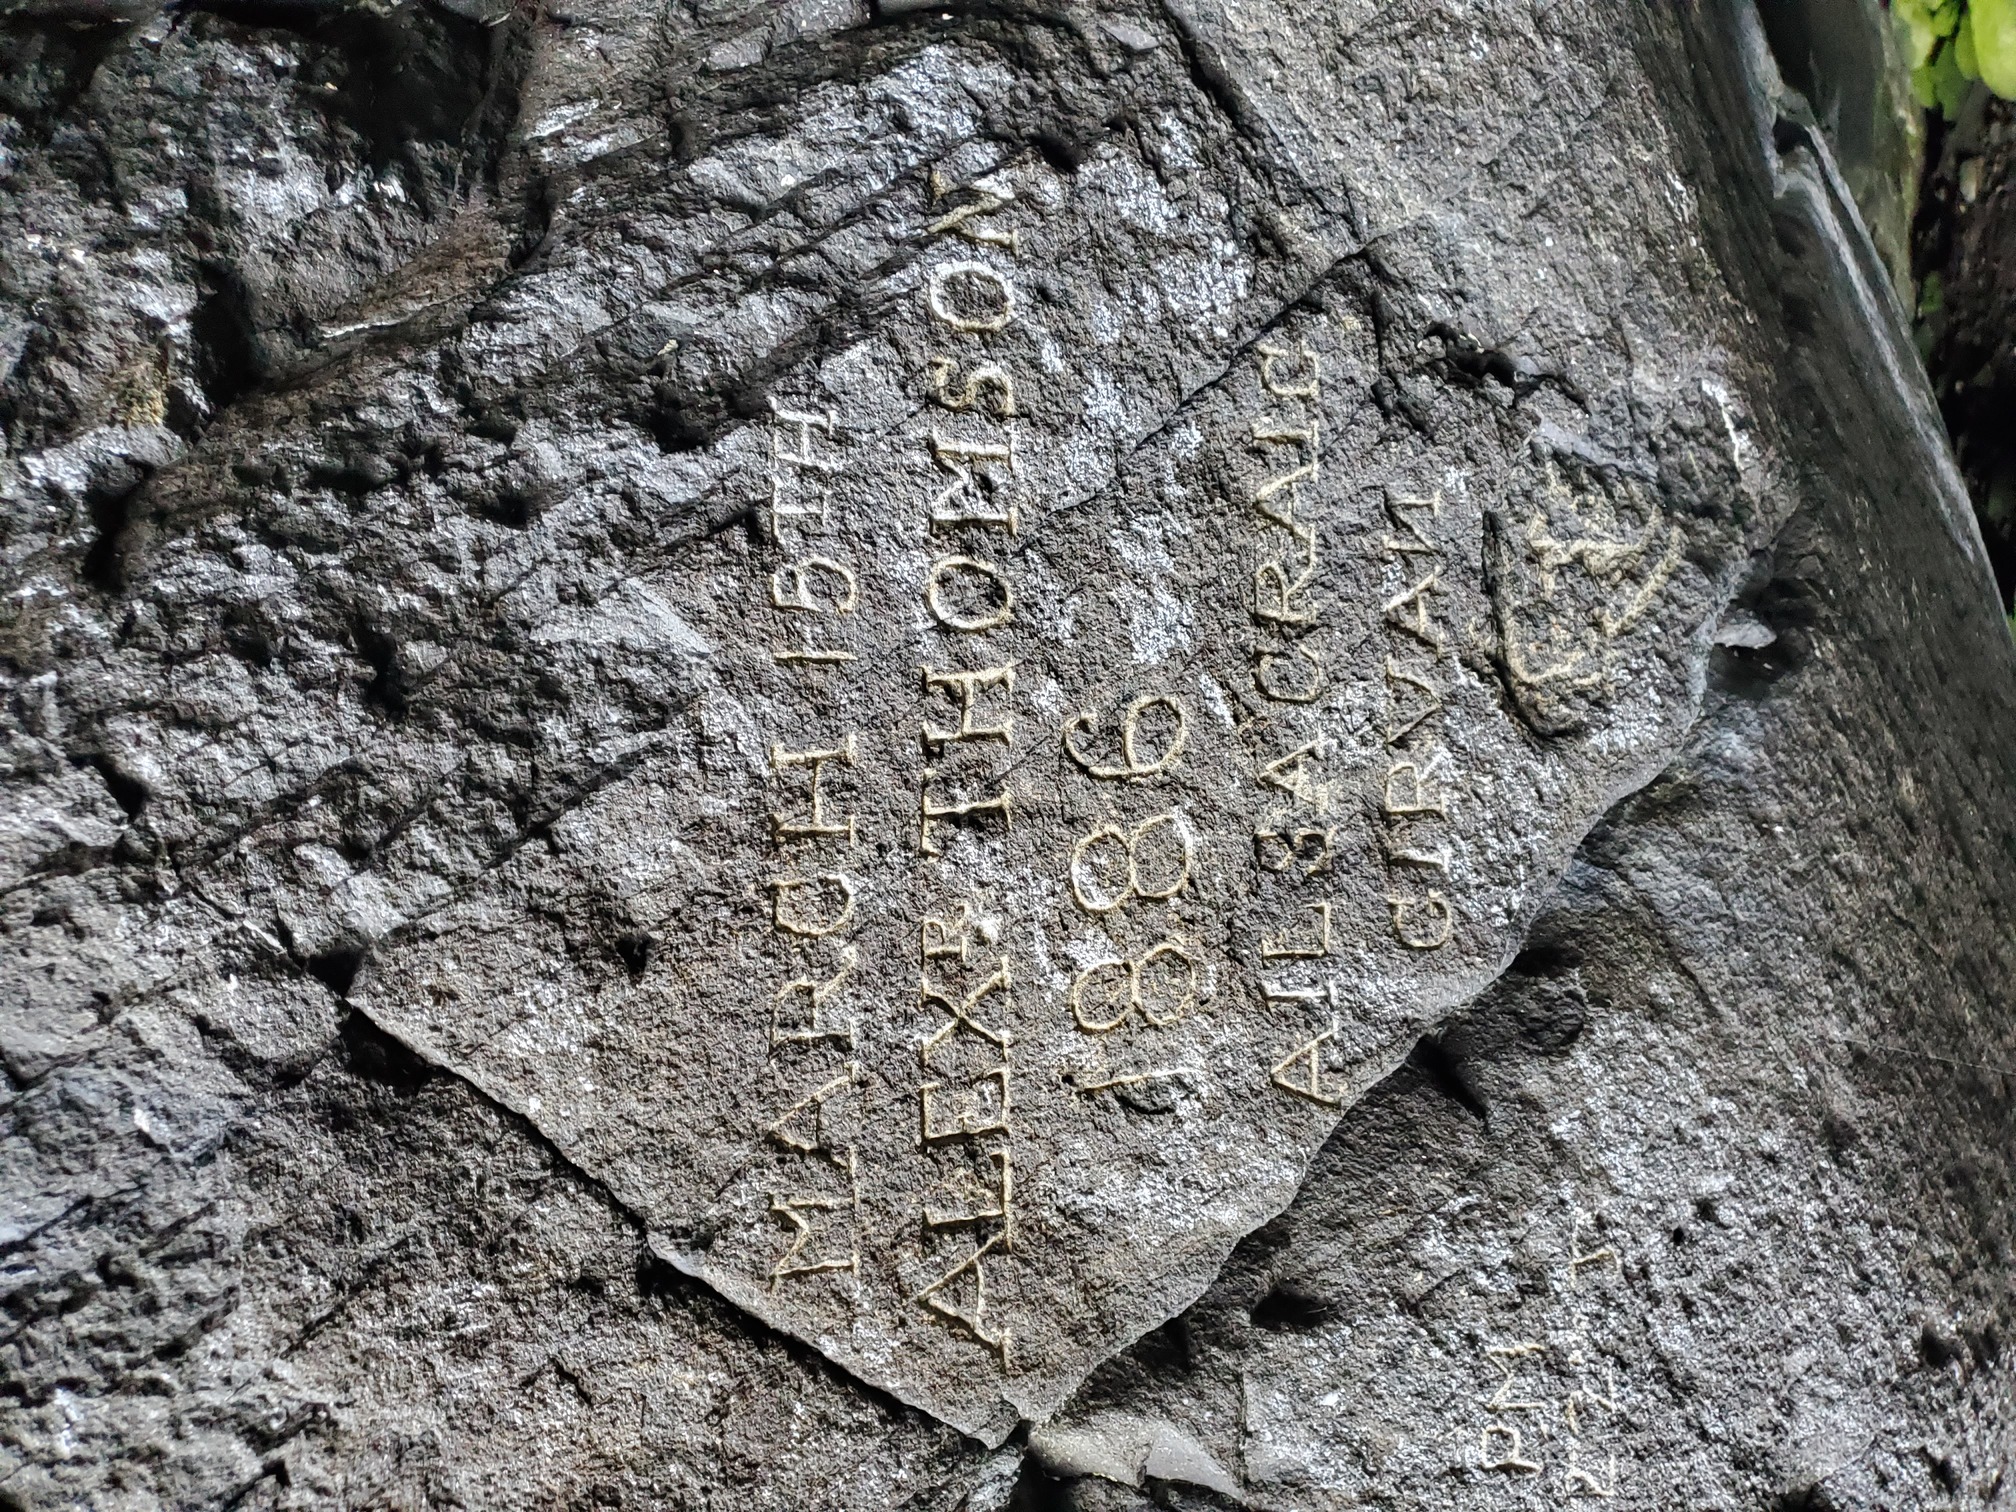 MARCH 15TH
ALEXR THOMSON
1886
AILSACRAIG
GIRVAN
PM